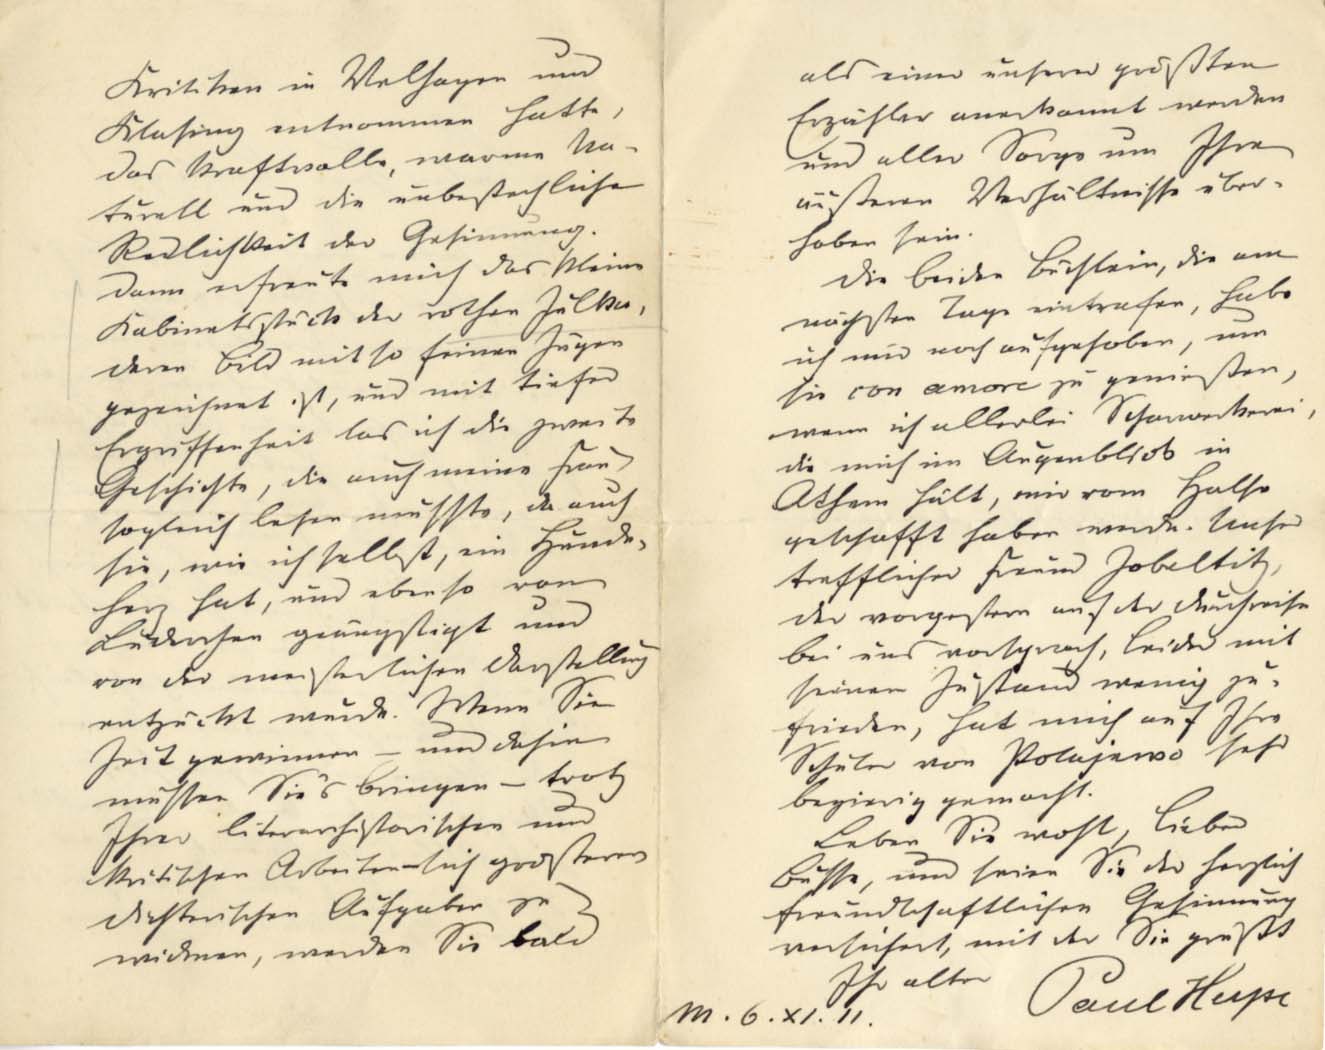 Kritiken in Velhagen und
Klasing entnommen hatte,
das kraftvolle, warme Na-
turell und die unbestechliche
Redlichkeit der Gesinnung.
Dann erfreute mich das kleine
Kabinetsstück der rothen Julka,
deren Bild mit so feinen Zügen
gezeichnet ist, und mit tiefer
Ergriffenheit las ich die zweite
Geschichte, die auch meine Frau
sogleich lesen mußte, da auch
sie, wie ich selbst, ein Hunde-
herz hat, und ebenso vom
geängstigt und
von der meisterlichen Darstellung
entzückt wurde. Wenn Sie
Zeit gewinnen – und dahin
müssen Sie's bringen – trotz
Ihrer literarhistorischen und
kritischen Arbeiten sich größeren
dichterischen Aufgaben zu
widmen, werden Sie bald
als einer unserer größten
Erzähler anerkannt werden
und aller Sorge um Ihre
äußeren Verhältnisse über-
hoben sein.
Die beiden Büchlein, die am
nächsten Tage eintrafen, habe
ich mir noch aufgehoben, um
sie con amore zu genießen,
wenn ich allerlei Scharwerkerei,
die mich im Augenblick in
Athem hält, mir vom Halse
geschafft haben werde. Unser
trefflicher Freund Zobeltitz,
der vorgestern auf der Durchreise
bei uns vorsprach, leider mit
seinem Zustand wenig zu-
frieden, hat mich auf Ihre
Schüler von Polajewo sehr
begierig gemacht.
Leben Sie wohl, lieber
Busse, und seien Sie der herzlich
freundschaftlichen Gesinnung
versichert, mit der Sie grüßt
Ihr alter
Paul Heyse
M. 6. XI. 11.